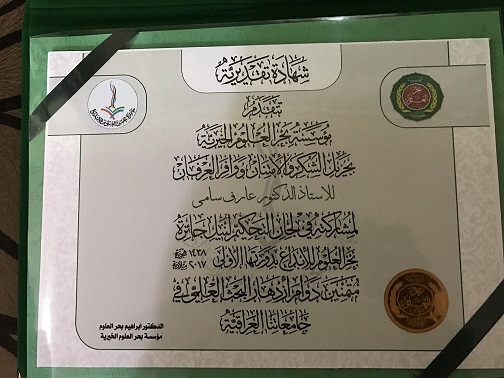 شهادة تقديرية
تتقدم
مؤسسة بحر العلوم الخيرية
بجزيل الشكر والامتنان ووافر العرفان
للاستاذ الدكتور عارف سامي
لمشاركته في لجان التحكيم لنيل جائزة
بحر العلوم للإبداع بدورتها الأولى ١٤٣٨ هجرية ٢٠١٧ ميلادية
متمنين دوام ازدهار البحث العلمي في
جامعاتنا العراقية
الدكتور ابراهيم بحر العلوم
مؤسسة بحر العلوم الخيرية